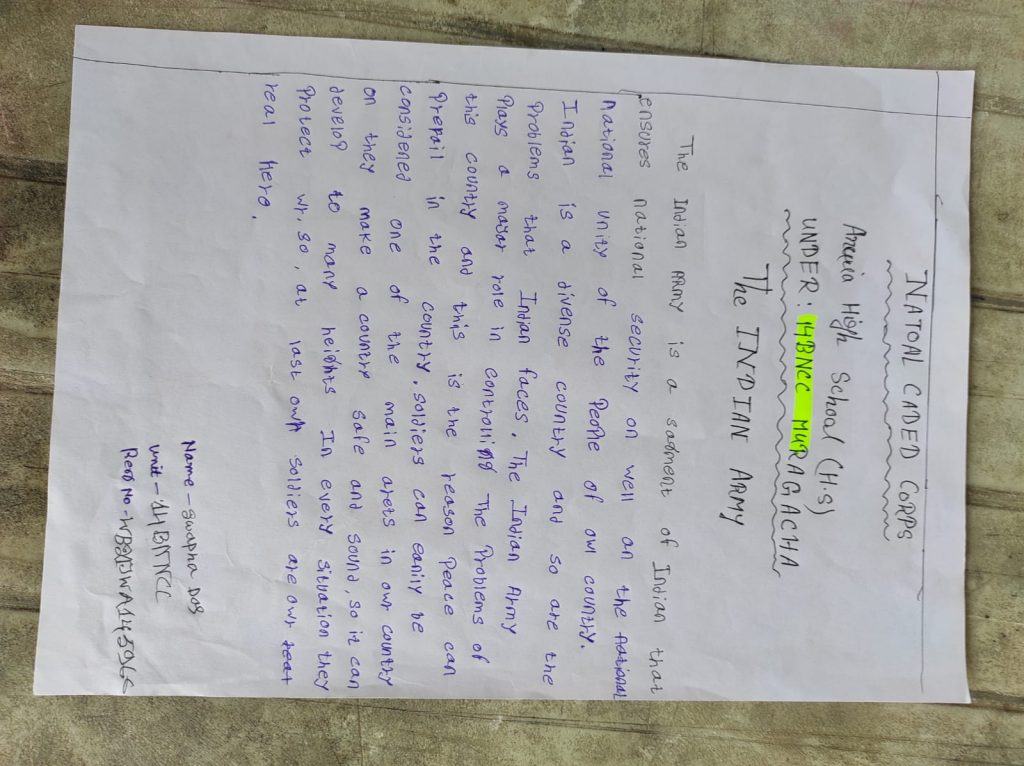 NATOAL CADED CORPS
High School (H.S)
UNDER: 14BNCC MURAGACHA
The INDIAN ARMY
The Indian ARMY is a sadment of Indian that
ensures national security on well an the national
national unity of the People of own country.
Indian is a divense country and so are the
Problems that Indian faces. The Indian Army
Plays a majar role in controlling The Problems of
this country and this is the reason Peace can
Prepail in the country. soldiers can eanily be
considened one of the main arets in own country
on they make a country safe and sound, so it can
develop to many heights In every situation they
Protect wr. so, at last own soldiers are own
real hero.
Name - swapna Das
unit - 14BNNCC